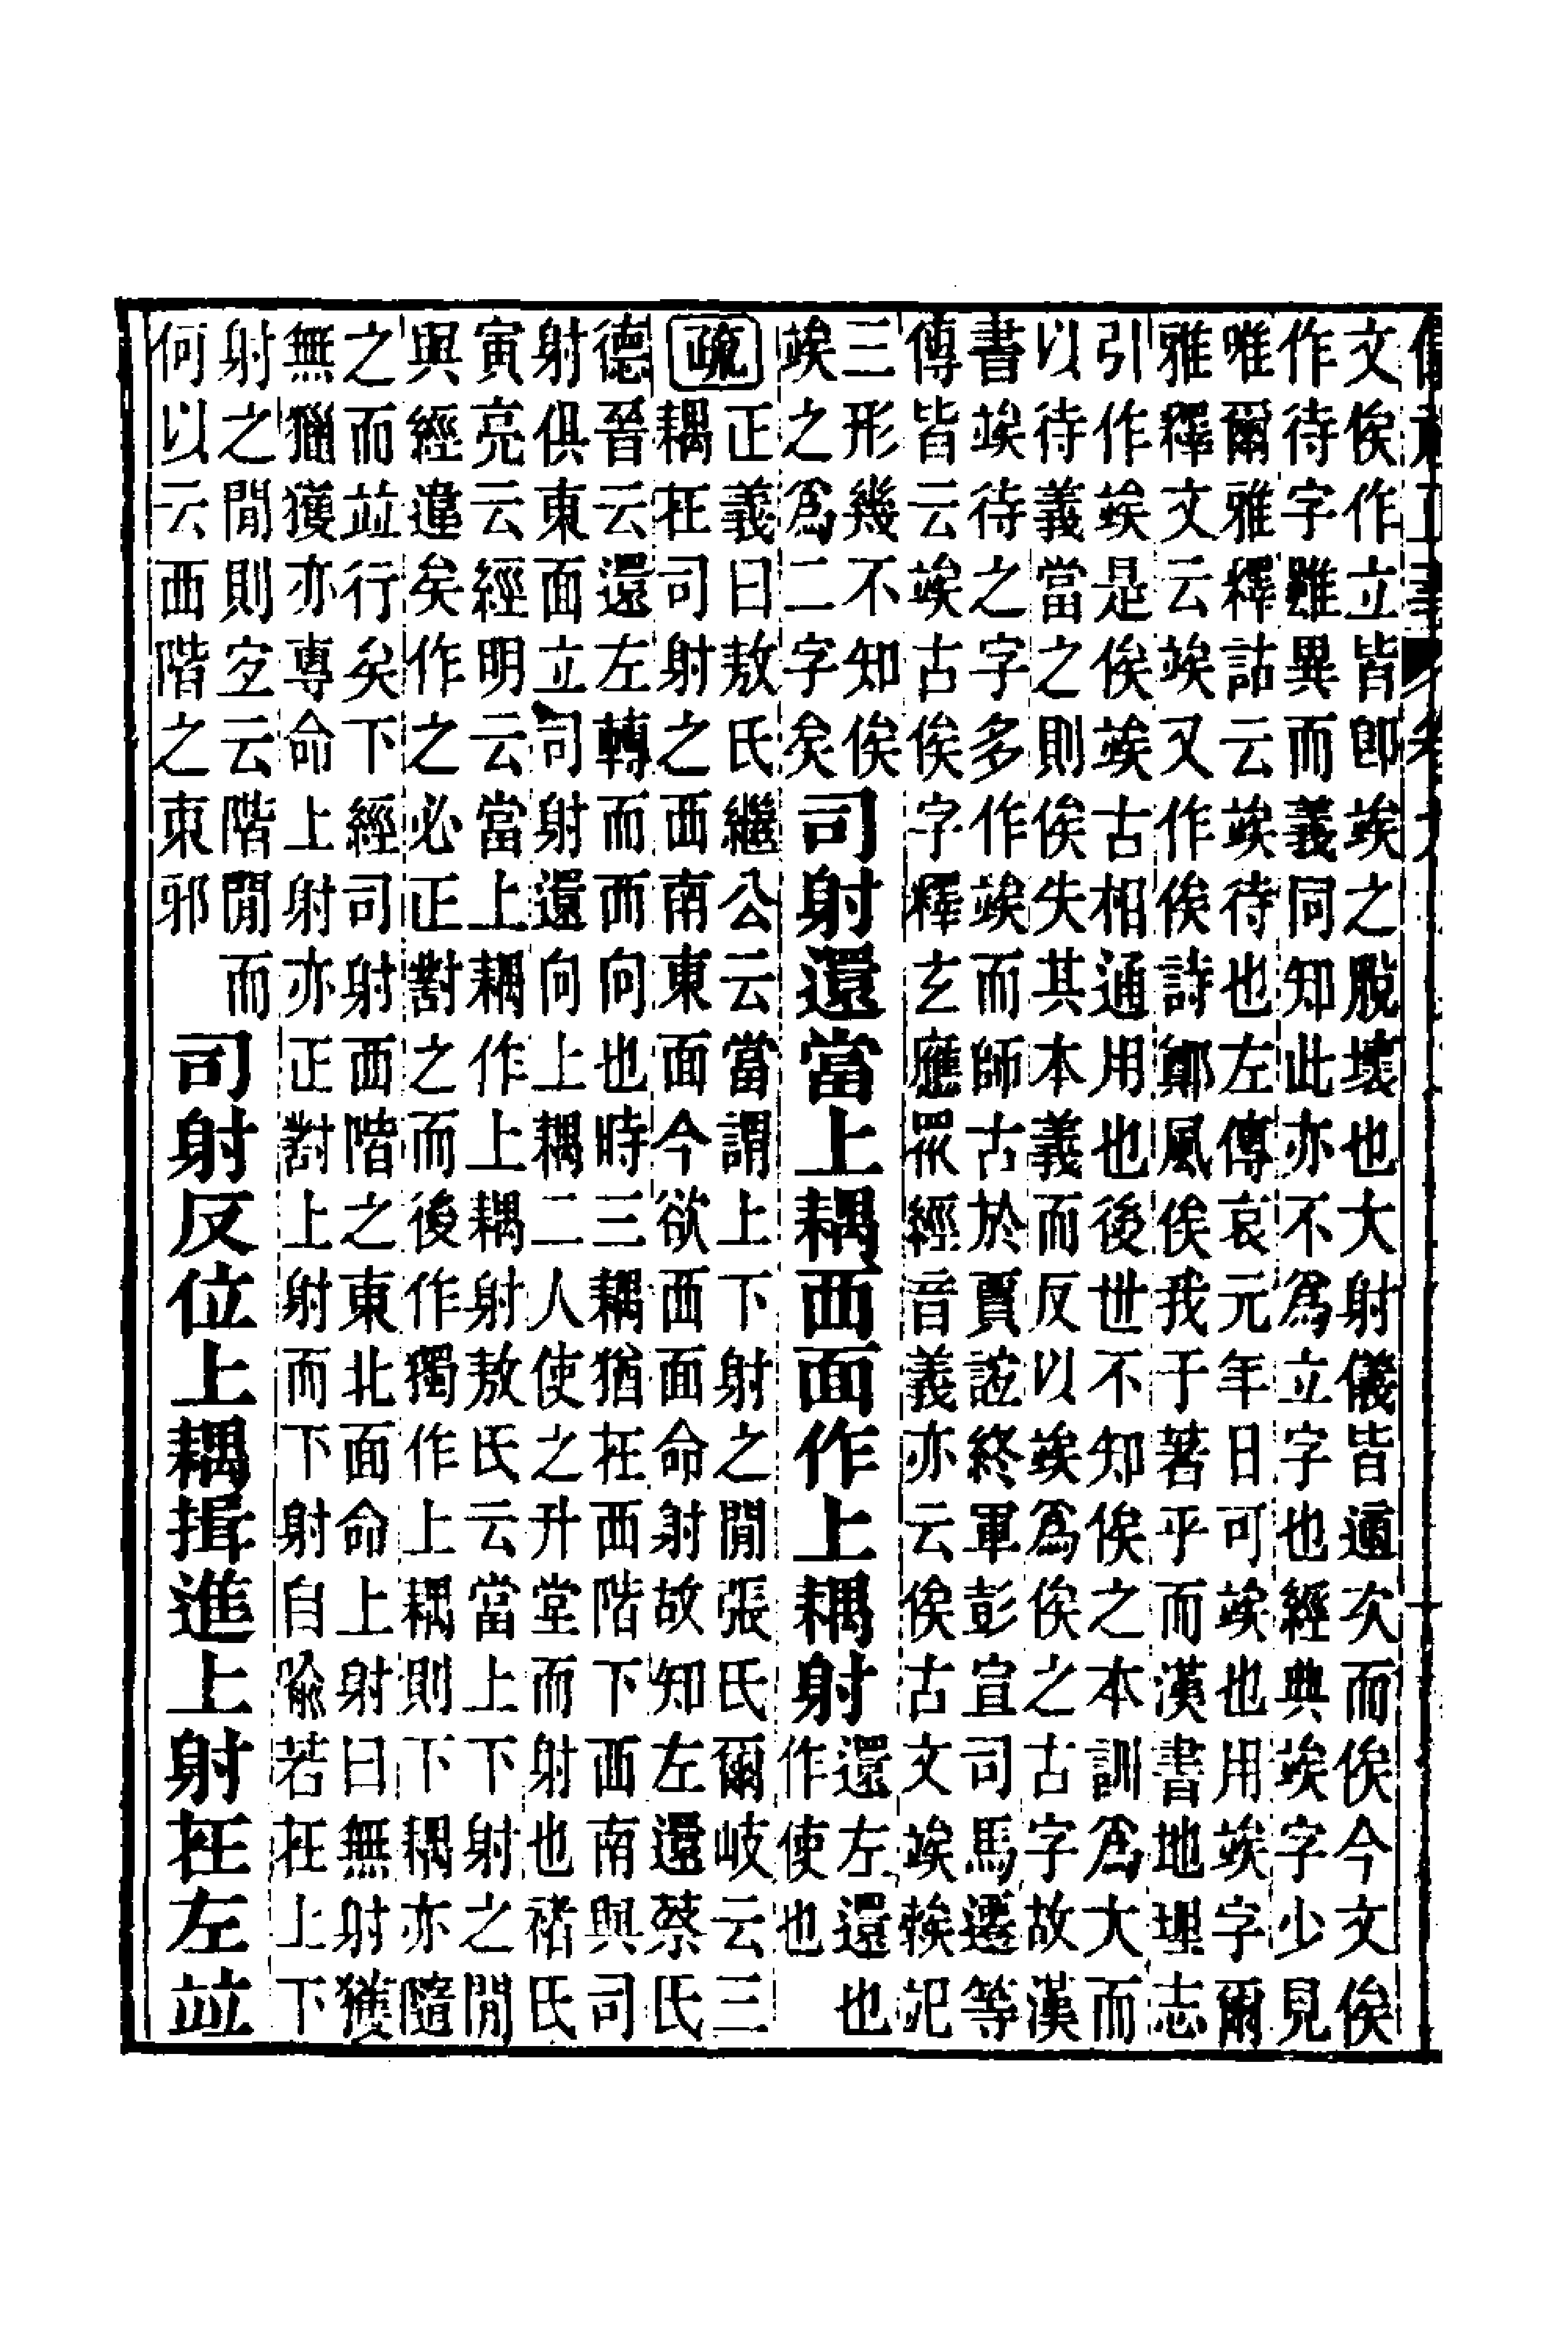 文俟作立皆卽竢之脫壞也大射儀皆適次而俟今文俟
作待字雖異而義同知此亦不爲立字也經典竢字少見
唯爾雅釋詁云竢待也左傳哀元年日可竢也用竢字爾
雅釋文云竢又作俟詩鄭風俟我于著乎而漢書地理志
引作竢是俟竢古相通用也後世不知俟之本訓爲大而
以待義當之則俟失其本義而反以竢爲俟之古字故漢
書竢待之字多作竢而師古於賈誼終軍彭宣司馬遷等
傳皆云竢古俟字釋玄應眾經音義亦云俟古文竢𥏳𥏳
三形幾不知俟
竢之爲二字矣
司射還當上耦西面作上耦射
還左還也
作使也
疏
正義曰敖氏繼公云當謂上下射之閒張氏爾岐云三
耦在司射之西南東面今欲西面命射故知左還蔡氏
德晉云還左轉而西向也時三耦猶在西階下西南與司
射俱東面立司射還向上耦二人使之升堂而射也褚氏
寅亮云經明云當上耦作上耦射敖氏云當上下射之閒
與經違矣作之必正對之而後作獨作上耦則下耦亦隨
之而竝行矣下經司射西階之東北面命上射曰無射獲
無獵獲亦專命上射亦正對上射而下射自喻若在上下
射之閒則宜云階閒而
何以云西階之東邪
司射反位上耦揖進上射在左竝